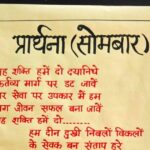 प्रार्थना (सोमबार)
ह शक्ति हमें दो दयानिधे
र्तव्य मार्ग पर डट जावें
र सेवा पर उपकार में हम
ग जीवन सफल बना जावें
ह शक्ति हमें दो.......
हम दीन दुखी निबलों विकलों
के सेवक बन संताप हरें